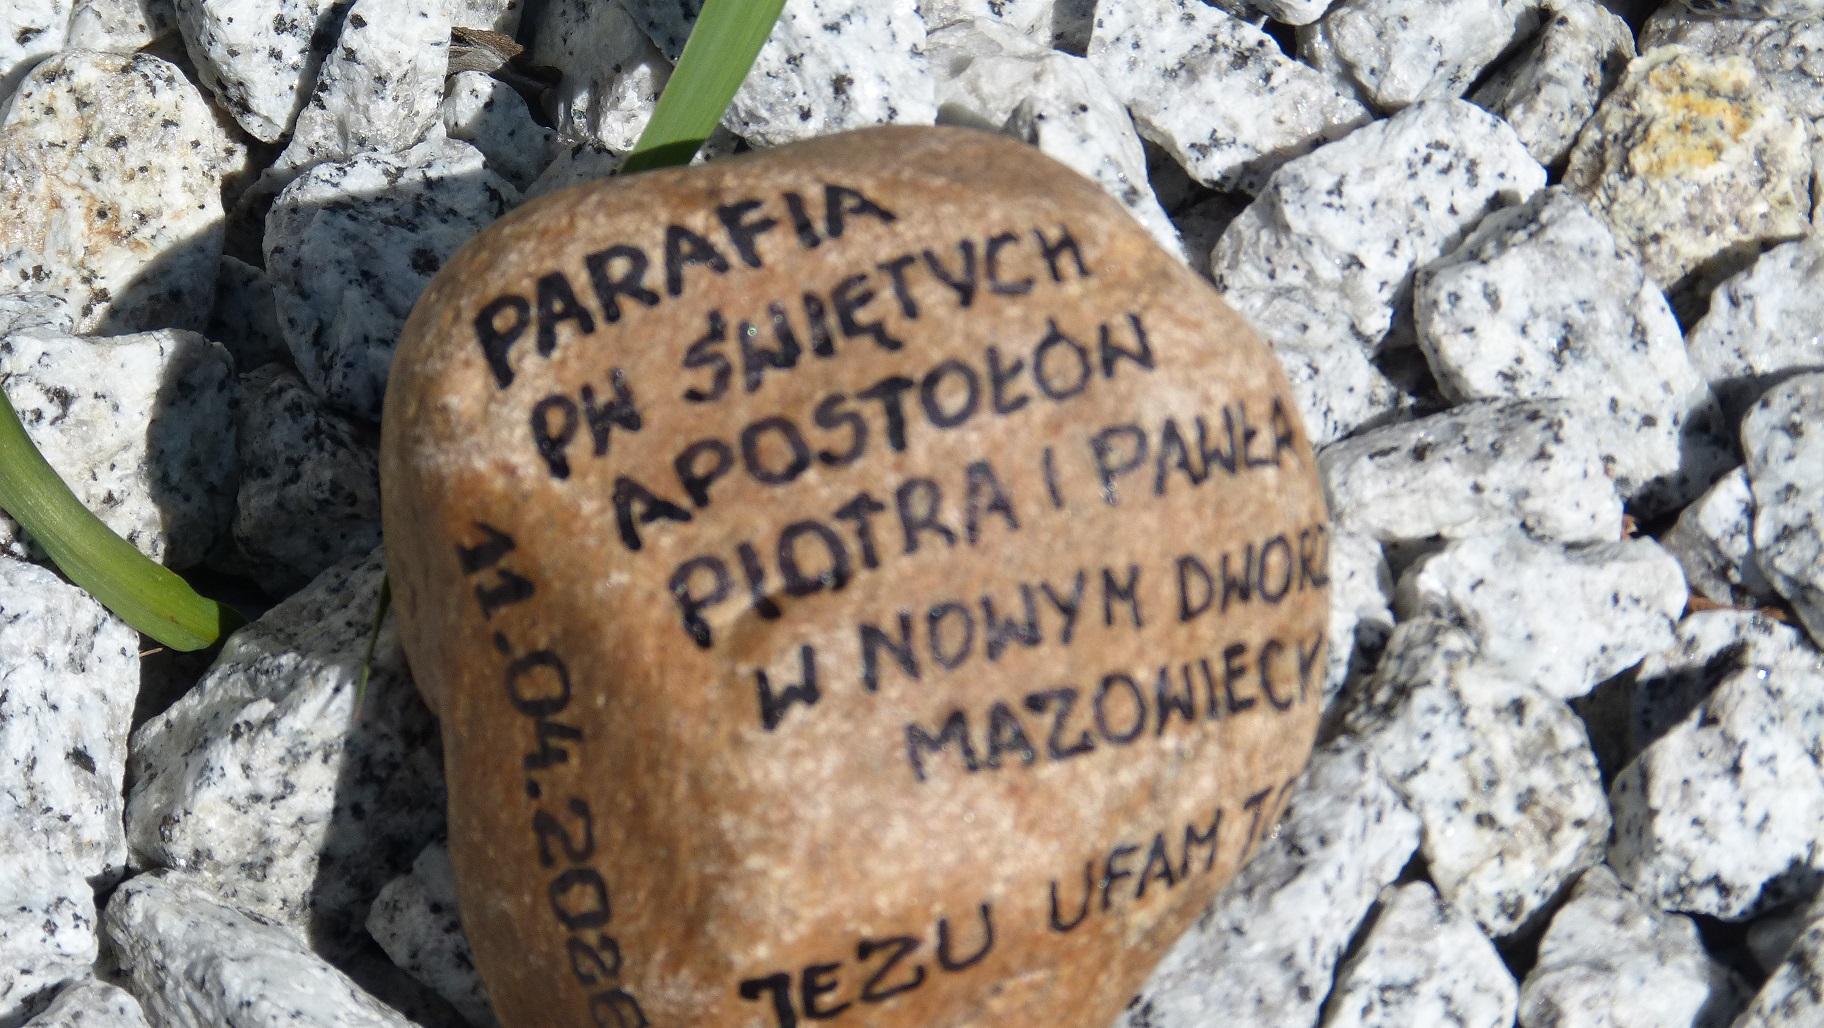 PARAFIA
PW ŚWIĘTYCH
APOSTOŁÓW
PIOTRA I PAWŁA
W NOWYM DWORZ
MAZOWIECK
JEZU UFAM TO
11.04.2026